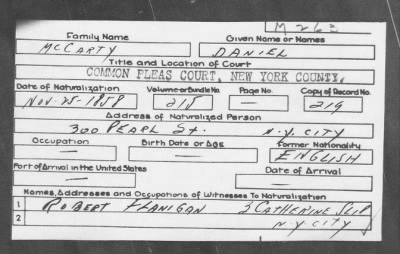 M 263
Family Name Given Name or Names
McCARTY DANIEL
Title and Location of Court
COMMON PLEAS COURT, NEW YORK COUNTY.
Date of Naturalization Volume or Bundle No. Page No. Copy of Record No.
NOV-25-1858 218 — 219
Address of Naturalized Person
300 PEARL St. N.Y. CITY
Occupation Birth Date or Age Former Nationality
— — ENGLISH
Port of Arrival in the United States Date of Arrival
— —
Names, Addresses and Occupations of Witnesses To Naturalization
1 ROBERT FLANIGAN 3 CATHERINE SLIP
2 N.Y. CITY